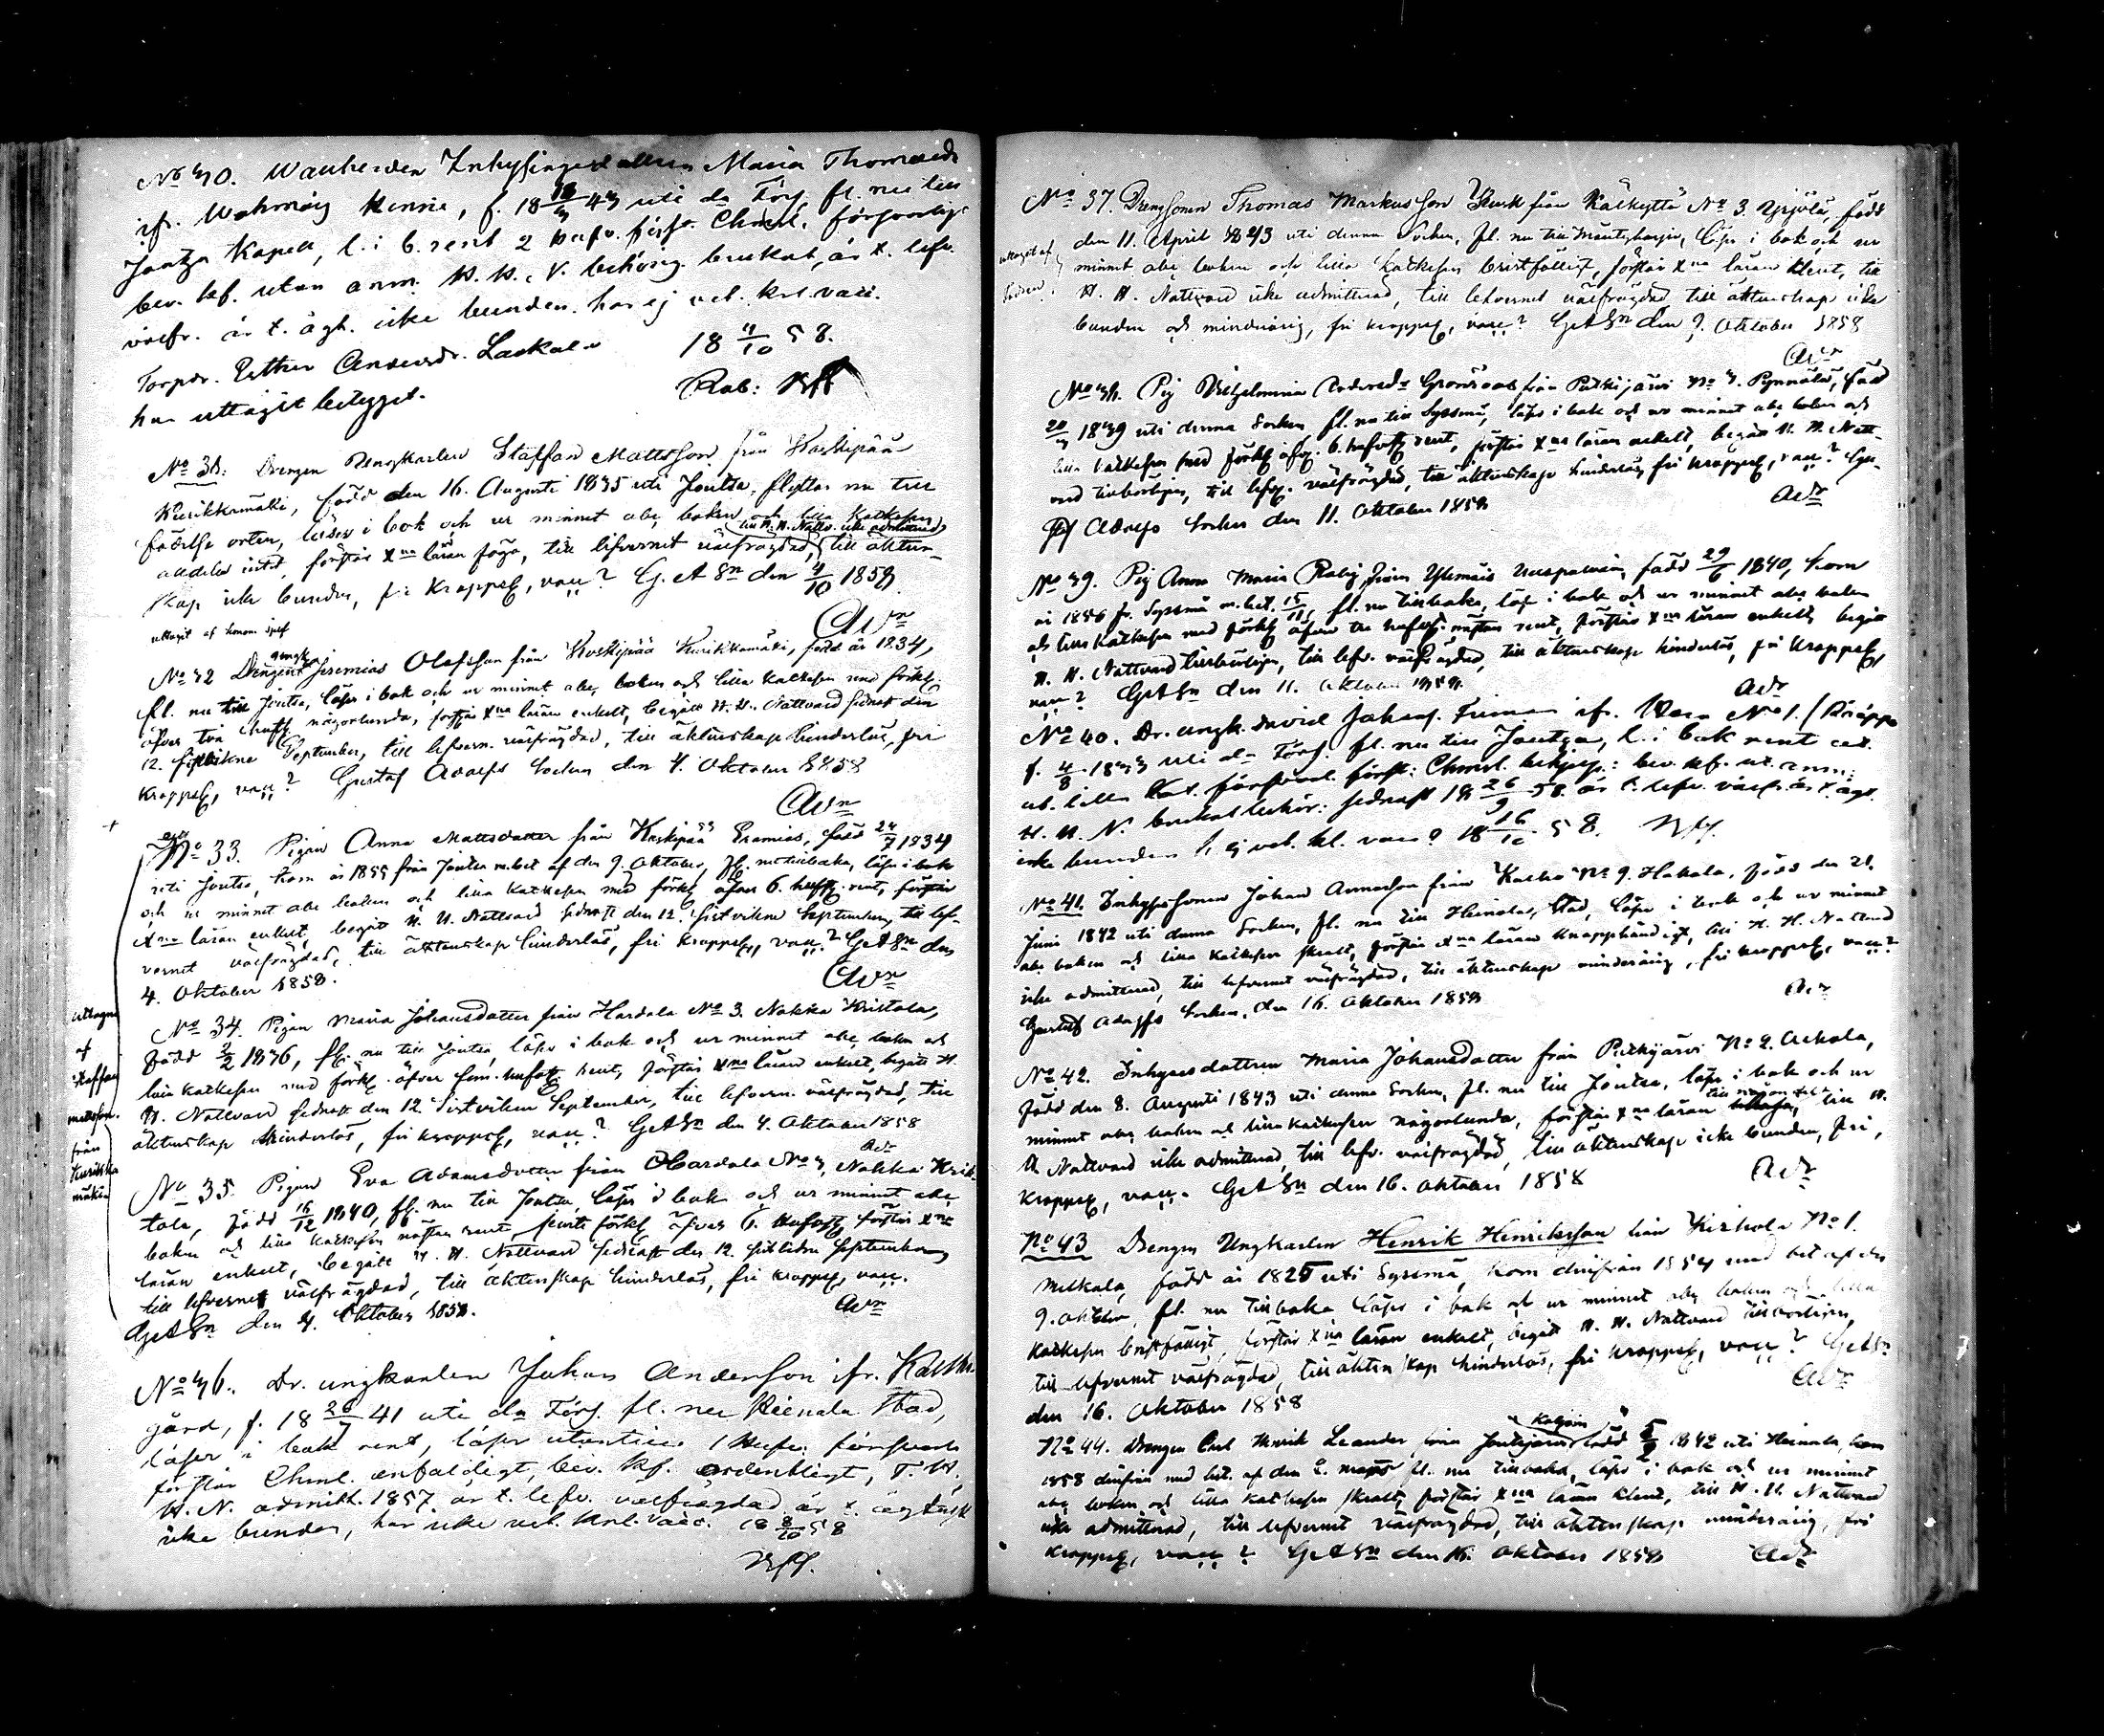 No 30. Maria Thomasdr
ifr. f. 18 43 uti da Förs. fl. nu till
Joutza Kapell, l. i b. rent 2 förf. Chmd. försvarligt
bev. Nf. utan anm. H. H. N. behörig. brukat, är t. lefv.
välfr. är t. ägt. icke bunden. har ej vet. krl. vacc.
Torpdr. Esther Andersdr. 18 11/10 58.
har uttagit betyget.
No 31. Drengen Ungkarlen Staffan Mattsson från Koskipää
Kurikkamäki, född den 16. Augusti 1835 uti Joutsa, flyttar nu till
födelse orten, läser i bok och ur minnet abc boken och lilla Katkesen
till H. H. Nattv. icke admitterad
alldeles intet, förstår Xna läran föga, till lefvernet välfrägdad, till äkten-
skap icke bunden, fri kroppsf, vacc? G. A Sn den 4/10 1858
uttagit af honom sjelf
No 32 Drengen Jeremias Olofsson från Koskipää Kurikkamäki, född år 1834,
fl. nu till Joutsa, läser i bok och ur minnet abc boken och lilla Katkesen med förkl.
öfver två hufst. någorlunda, förstår Xna läran enkelt, begått H. H. Nattvard sednast den
12. sistvikne September, till lefvern. välfrägdad, till äktenskap hinderlös, fri
kroppsf, vacc? Gustaf Adolfs Socken den 4. Oktober 1858
No 33. Pigan Anna Mattsdotter från Koskipää Eramies, född 24/7 1834
uti Joutsa, kom år 1855 från Joutsa m. bet af den 9. Oktober, fl. nu tillbaka, läser i bok
och ur minnet abc boken och lilla Katkesen med förkl öfver 6. hufst. rent, förstår
Xna läran enkelt, begått H. H. Nattvard sednast den 12. sistvikne September, till lef-
vernet välfrägdad, till äktenskap hinderlös, fri kroppsf, vacc? GetASn den
4. Oktober 1858.
No 34. Pigan Maria Johansdotter från Hardola No 3. Nokka Kristola,
född 2/2 1836, fl. nu till Joutsa, läser i bok och ur minnet abc boken och
lilla katkesen med förkl. öfver fem. hufst. rent, förstår Xna läran enkelt, begått H.
H. Nattvard sednast den 12. Sistvikne September, till lefvern. välfrägdad, till
äktenskap hinderlös, fri kroppsf, vacc? GetASn den 4. Oktober 1858
uttagne
af
Staffan
Mattsson.
från
Kurikka
mäki
No 35. Pigan Eva Adamsdotter från Hardola No 3, Nokka Kris-
tola, född 16/12 1840, fl. nu till Joutsa, läser i bok och ur minnet abc
boken och lilla Katkesen nästan rent, samt förkl öfver 6. hufst, förstår Xna
läran enkelt, begått H. H. Nattvard sednast den 12. sistlidne September
till lefvernet välfrägdad, till äktenskap hinderlös, fri kroppsf, vacc.
GetASn den 4. Oktober 1858.
No 36. Dr. ungkarlen Johan Andersson ifr.
gård, f. 18 41 uti da Förs. fl. nu Heinola Stad,
läser i bok rent, läser utantill försvarl.
förstår Chml. enfaldigt, bev. Nf. ordentligt, T. H.
H. N. admitt. 1857. är t. lefv. välfrägdad är t. ägtensk
icke bunden, har icke vet. krl. vacc. 18 8/10 58
No 37. Drengsonen Thomas Markusson från Kälkyttä No 3. Yrjölä, född
den 11. April 1843 uti denna Socken, fl. nu till Mäntyharju, läser i bok och ur
minnet abc boken och lilla Katkesen bristfälligt, förstår Xna läran klent, till
H. H. Nattvard icke admitterad, till lefvernet välfrägdad till äktenskap icke
bunden och minderårig, fri kroppsf, vacc? GetASn den 9. Oktober 1858
No 38. Pig Vilhelmina från Putkijärvi No 3. född
20 1839 uti denna Socken fl. nu till Sysmä, läser i bok och ur minnet abc boken och
lilla katkesen med förkl öfv. 6. hufst rent, förstår Xna läran enkelt, begått H. H. Natt-
vard tillbörligen, till lefv. välfrägdad, till äktenskap hinderlös fri kroppsf, vacc?
Adolfs Socken den 11. Oktober 1858
No 39. Pig Anna Maria från född 29/6 1840, kom
år 1856 fr. Sysmä m. bet. 15/11, fl. nu tillbaka, läser i bok och ur minnet abc boken
och lilla katkesen med förkl öfver tre hufst. nästan rent, förstår Xna läran enkelt, begått
H. H. Nattvard tillbörligen, till lefv. välfrägdad, till äktenskap hinderlös, fri kroppsf,
vacc? GetASn den 11. Oktober 1858.
No 40. Dr. ungk. David Johans. ifr. No 1.
f. 4/8 18 uti da Förs. fl. nu till Joutza, l. i bok rent
ut. lilla Kat. försvarl. först: Chmd. bev. Nf. ut. anm:
H. H. N. brukat behör: sednast 18 26/9 58. är t. lefv. välfr. är t. ägt.
icke bunden h. ej vet. kl. vacc? 18 16/10 58.
No 41. Inhysessonen Johan från Kalho No 9. Hakala, född den 21.
Juni 1842 uti denna Socken, fl. nu till Heinola Stad, läser i bok och ur minnet
abc boken och lilla Katkesen skralt, förstår Xna läran knapphändigt, till H. H. Nattvard
icke admitterad, till lefvernet välfrägdad, till äktenskap minderårig, fri kroppsf, vacc?
Gustaf Adolfs Socken, den 16. Oktober 1858
No 42. Inhysesdottren Maria Johansdotter från Putkijärvi No 2.
född den 8. Augusti 1843 uti denna Socken, fl. nu till Joutsa, läser i bok och ur
minnet abc boken och lilla katkesen någorlunda, förstår Xna läran till någon del, till H.
H. Nattvard icke admitterad, till lefv. välfrägdad, till äktenskap icke bunden, fri,
kroppsf, vacc. GetASn den 16. Oktober 1858
No 43 Drengen Ungkarlen Henrik Henriksson från No 1.
född år 1825 uti Sysmä, kom därifrån 1854 med bet af den
9. Oktober, fl. nu tillbaka läser i bok och ur minnet abc boken och lilla
Katkesen bristfälligt, förstår Xna läran enkelt, begått H. H. Nattvard tillbörligen,
till lefvernet välfrägdad, till äktenskap hinderlös, fri kroppsf, vacc? GetASn
den 16. Oktober 1858
No 44. Drengen Carl Henrik Leander från född 5/9 1842 uti Heinola, kom
1858 därifrån med bet. af den 2. fl. nu tillbaka, läser i bok och ur minnet
abc boken och lilla katkesen skralt, förstår Xna läran klent, till H. H. Nattvard
icke admitterad, till lefvernet välfrägdad, till äktenskap minderårig, fri
kroppsf, vacc? GetASn den 16. Oktober 1858